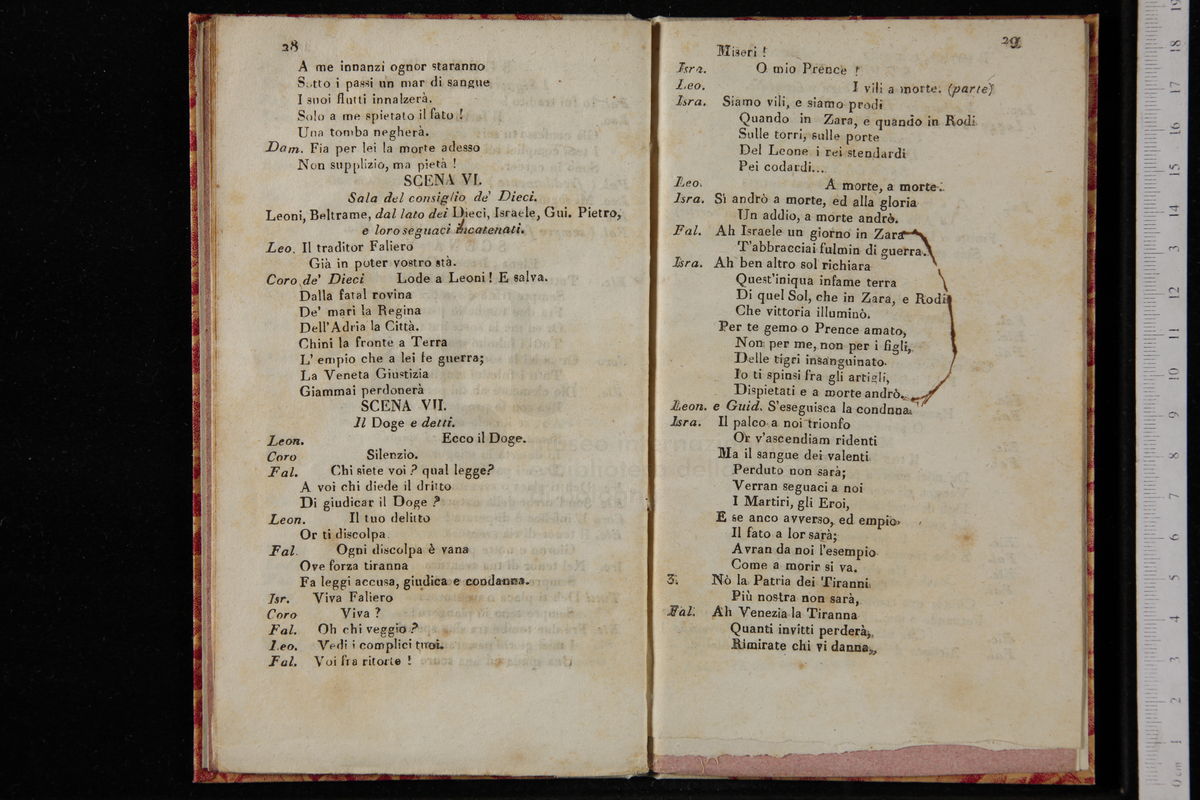 28
A me innanzi ognor staranno
Sotto i passi un mar di sangue
I suoi flutti innalzerà.
Solo a me spietato il fato !
Una tomba negherà.
Dam. Fia per lei la morte adesso
Non supplizio, ma pietà !
SCENA VI.
Sala del consiglio de' Dieci.
Leoni, Beltrame, dal lato dei Dieci, Israele, Gui. Pietro,
e loro seguaci incatenati.
Leo. Il traditor Faliero
Già in poter vostro stà.
Coro de' Dieci Lode a Leoni ! E salva.
Dalla fatal rovina
De' mari la Regina
Dell'Adria la Città.
Chini la fronte a Terra
L' empio che a lei fe guerra;
La Veneta Giustizia
Giammai perdonerà
SCENA VII.
Il Doge e detti.
Leon. Ecco il Doge.
Coro Silenzio.
Fal. Chi siete voi ? qual legge?
A voi chi diede il dritto
Di giudicar il Doge ?
Leon. Il tuo delitto
Or ti discolpa.
Fal. Ogni discolpa è vana
Ove forza tiranna
Fa leggi accusa, giudica e condanna.
Isr. Viva Faliero
Coro Viva ?
Fal. Oh chi veggio ?
Leo. Vedi i complici tuoi.
Fal. Voi fra ritorte !
29
Miseri !
Isra. O mio Prence !
Leo. I vili a morte. (parte)
Isra. Siamo vili, e siamo prodi
Quando in Zara, e quando in Rodi
Sulle torri, sulle porte
Del Leone i rei stendardi
Pei codardi...
Leo. A morte, a morte.
Isra. Sì andrò a morte, ed alla gloria
Un addio, a morte andrò.
Fal. Ah Israele un giorno in Zara
T'abbracciai fulmin di guerra.
Isra. Ah ben altro sol richiara
Quest'iniqua infame terra
Di quel Sol, che in Zara, e Rodi
Che vittoria illuminò.
Per te gemo o Prence amato,
Non per me, non per i figli,
Delle tigri insanguinato
Io ti spinsi fra gli artigli,
Dispietati e a morte andrò.
Leon. e Guid. S'eseguisca la condnna
Isra. Il palco a noi trionfo
Or v'ascendiam ridenti
Ma il sangue dei valenti
Perduto non sarà;
Verran seguaci a noi
I Martiri, gli Eroi,
E se anco avverso, ed empio
Il fato a lor sarà;
Avran da noi l'esempio
Come a morir si va.
3. Nò la Patria dei Tiranni
Più nostra non sarà,
Fal. Ah Venezia la Tiranna
Quanti invitti perderà,
Rimirate chi vi danna,